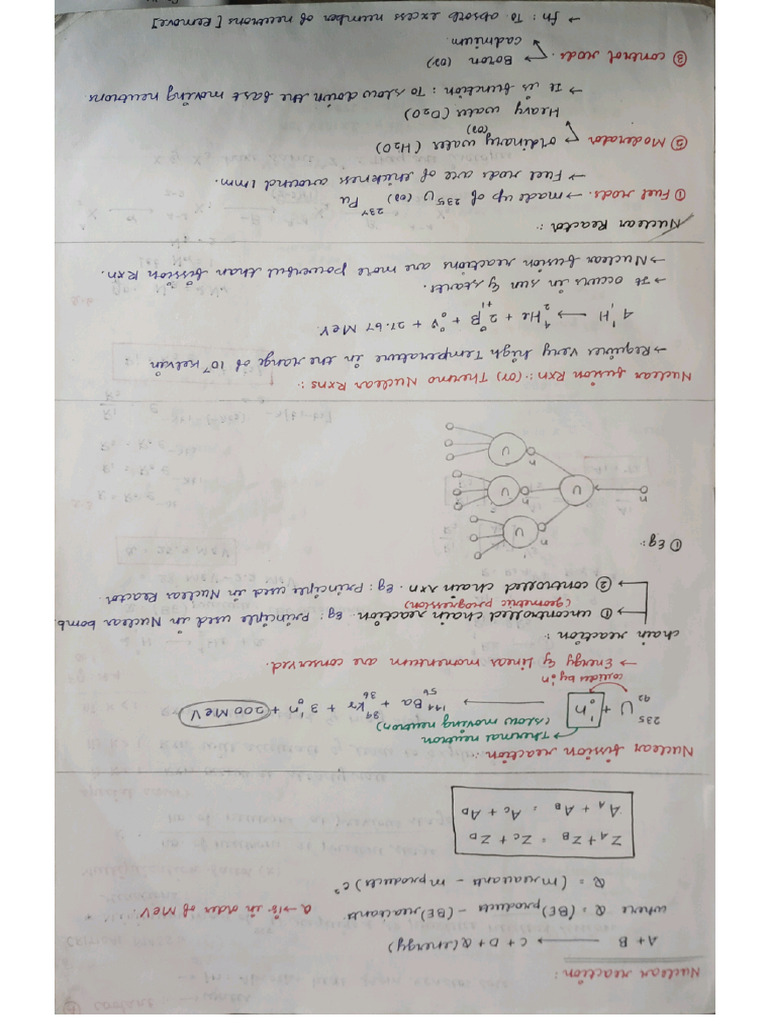 Nuclear reaction :
A + B ⟶ C + D + Q (energy)
where Q = (BE) products − (BE) reactants Q → is in order of MeV.
Q = (m reactants − m products) c²
Z_A + Z_B = Z_C + Z_D
A_A + A_B = A_C + A_D
Nuclear fission reaction :
→ Thermal neutron
(slow moving neutron)
²³⁵₉₂U + ¹₀n ⟶ ¹⁴¹₅₆Ba + ⁹⁴₃₆Kr + 3 ¹₀n + 200 MeV
collides by n
→ Energy & Linear momentum are conserved.
chain reaction :
→ ① uncontrolled chain reaction. Eg: principle used in Nuclear bomb.
(geometric progression)
→ ② controlled chain rxn. Eg: principle used in Nuclear Reactor.
① Eg:
n U n U
n U
n U
Nuclear fusion Rxn : (or) Thermo Nuclear Rxns :
→ Requires very high Temperature in the range of 10⁷ Kelvin
4 ¹₁H ⟶ ⁴₂He + 2 ⁰₊₁β + ⁰₀ν + 27.67 MeV.
→ It occurs in sun & stars.
→ Nuclear fusion reactions are more powerful than fission Rxn.
Nuclear Reactor :
① Fuel rods. → made up of ²³⁵U (or) ²³⁹Pu
→ Fuel rods are of thickness around 1mm.
② Moderator → ordinary water (H₂O)
(or)
Heavy water (D₂O)
→ It is function : To slow down the fast moving neutrons
③ control rods. → Boron (or)
cadmium.
→ fn : To absorb excess number of neutrons [Remove]